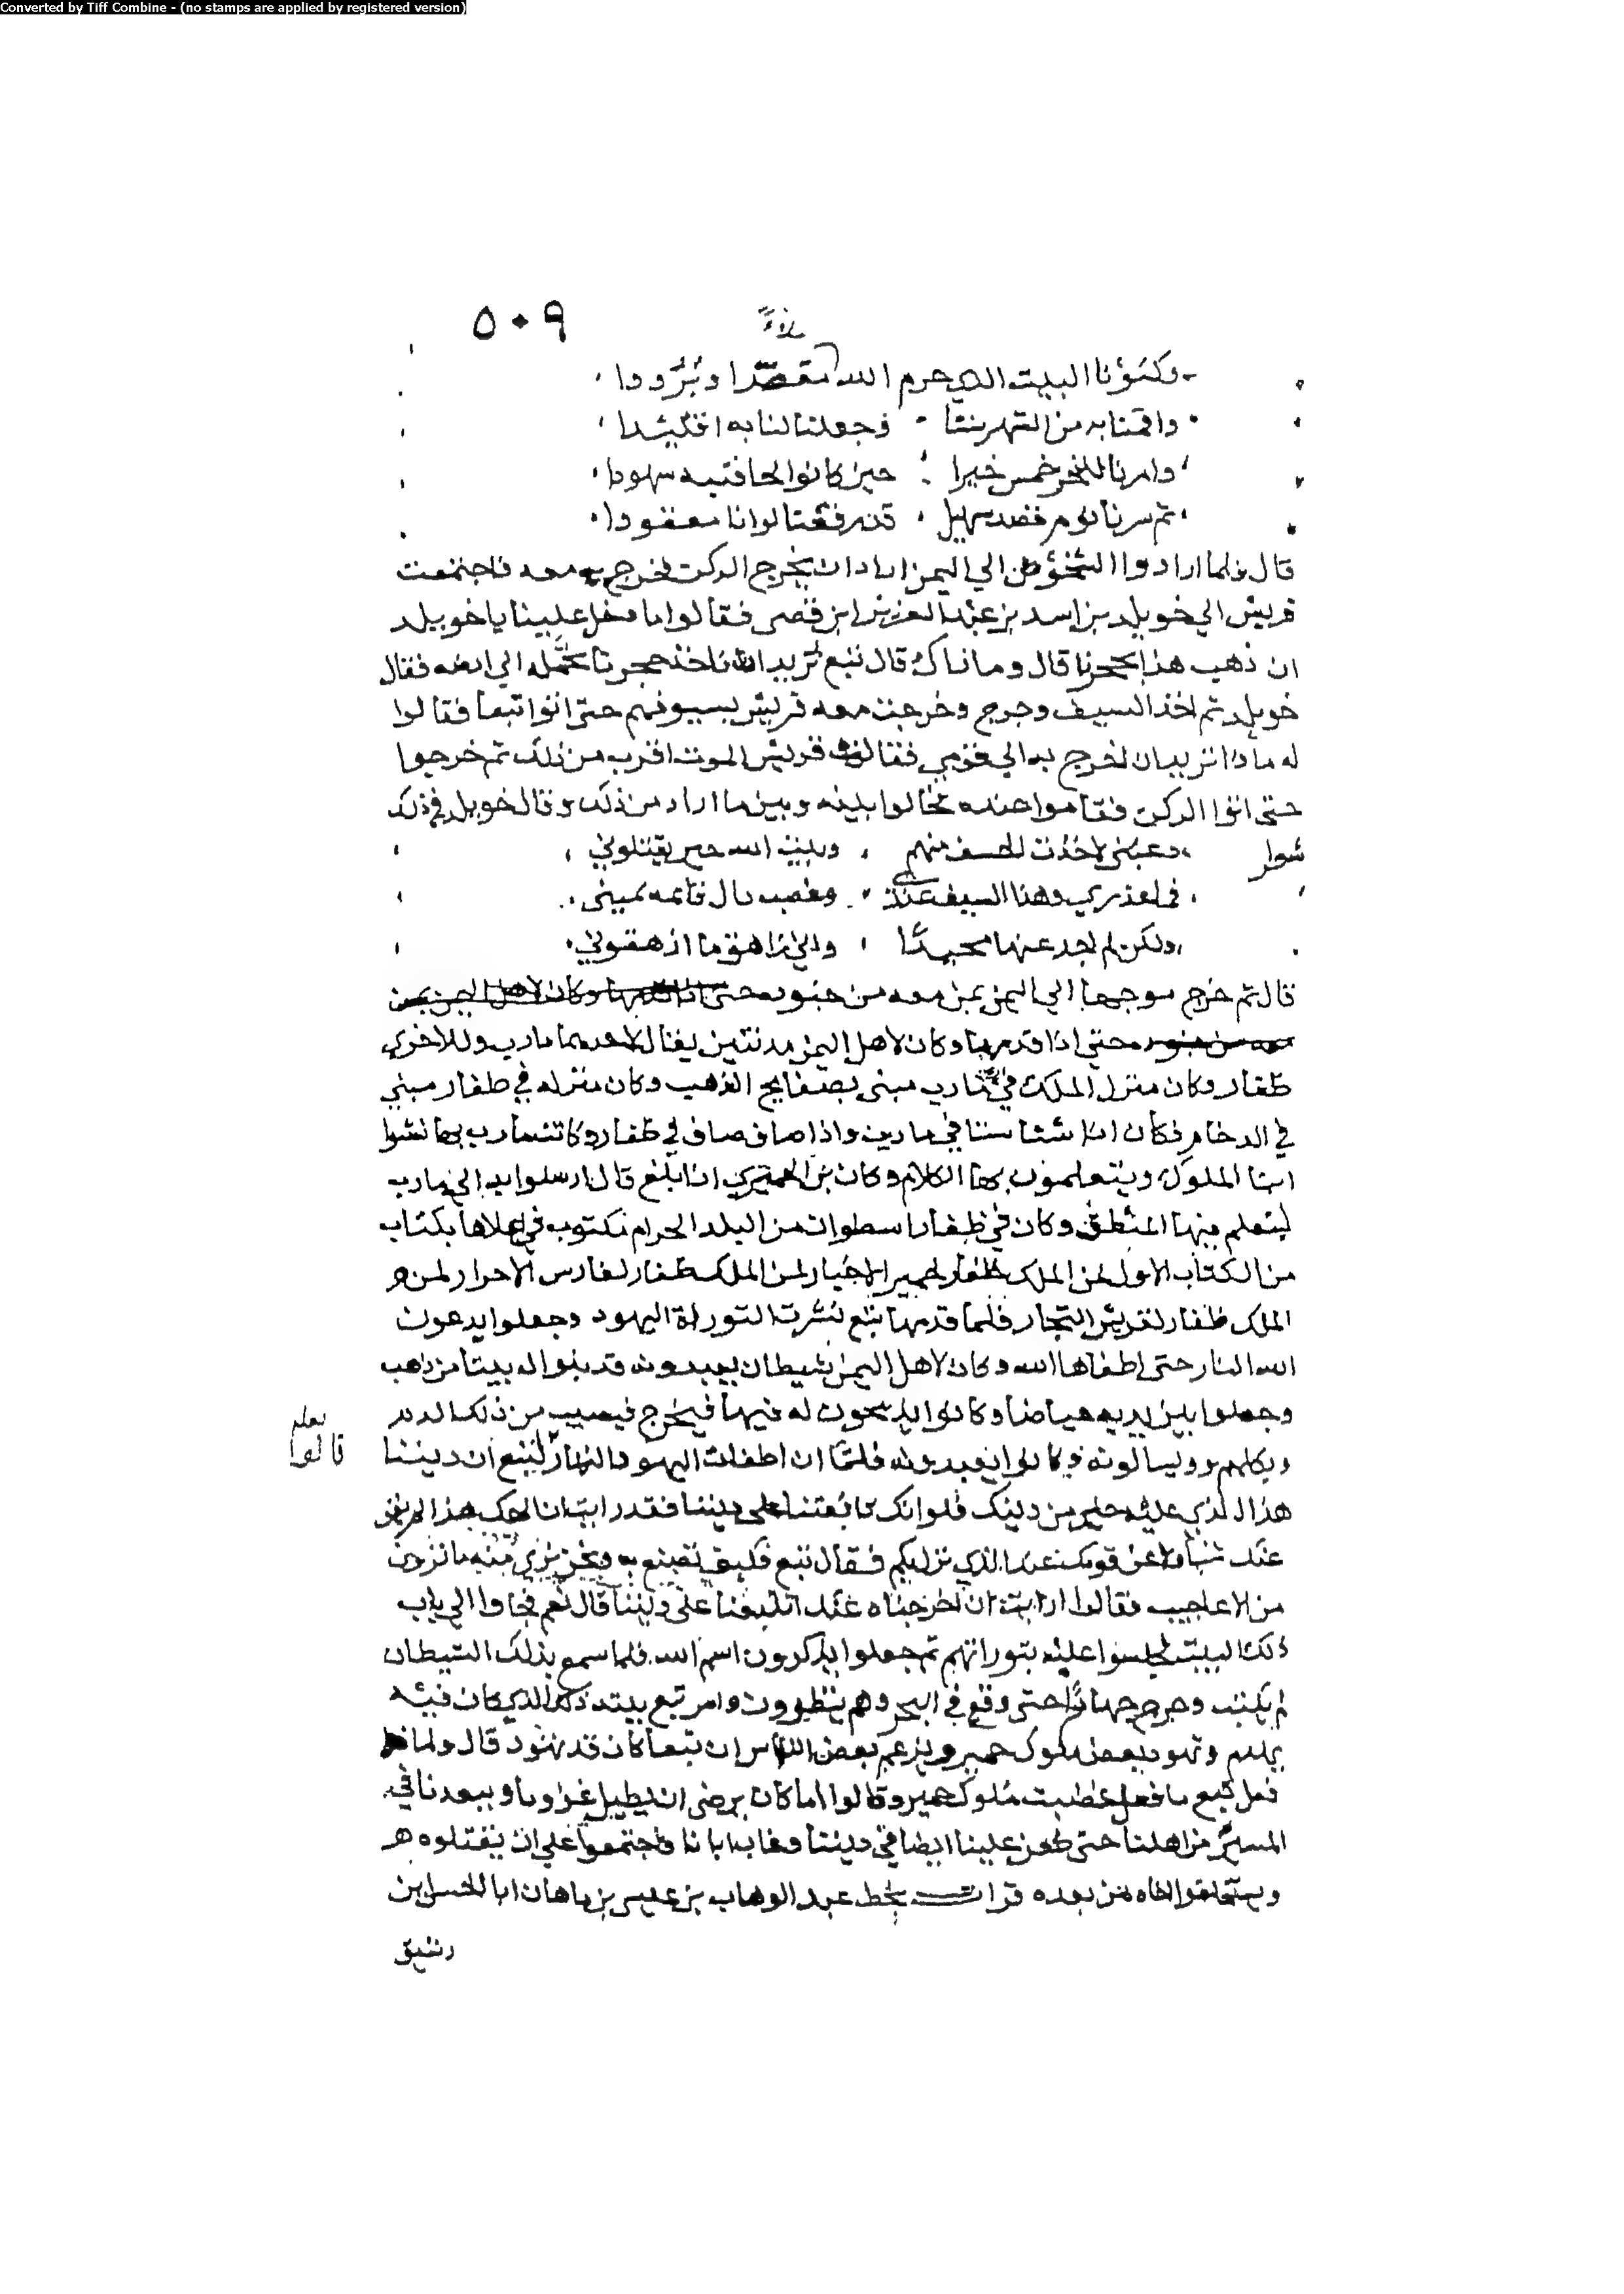 Converted by Tiff Combine - (no stamps are applied by registered version)
٥٠٩
ملاءً
وكسونا البيت الذي حرم الله مقصّدا وبُرُودا
واقمنا به من الشهر ستا وجعلنا لنا به اقليدا
وامرنا للنحر خمس حين كانوا لحافتيه سهودا
ثم سرنا نوم قصد سهيل قد رفعنا لوانا معقودا
قال فلما ارادوا الشخوص الي اليمن اراد ان يخرج الركن فخرج به معه فاجتمعت
قريش الي خويلد بن اسد بن عبد العزي بن قصي فقالوا ما دخل علينا يا خويلد
ان ذهب هذا بحجرنا قال وما ذاك قال تبع يريد ان ياخذ حجرنا يحمله الي ارضه فقال
خويلد ثم اخذ السيف وخرج وخرجت معه قريش بسيوفهم حتى اتوا تبعا فقالوا
له ماذا تريد ان تخرج به الي قومي فقالت قريش الموت اقرب من ذلك ثم خرجوا
حتى اتوا الركن فقاموا عنده فحالوا بينه وبين ما اراد من ذلك وقال خويلد في ذلك
شعرا
دعيني لاخذت الخسف منهم وبيت الله حين يقتلوني
فما عذري وهذا السيف عندي وعضب نال قائمه يميني
ولكن لم اجد عنها محيدًا واني زاهق ما ازهقوني
قال ثم خرج موجها الي اليمن بمن معه من جنوده حتى اذا قدمها وكان لاهل اليمن بمن
معه من جنوده حتى اذا قدمها وكان لاهل اليمن مدينتين يقال لاحدهما مارب وللاخري
ظفار وكان منزل الملك في مارب مبنى بصفايح الذهب وكان منزله في ظفار مبني
في الرخام فكان اذا شتا شتا في مارب واذا صاف صاف في ظفار وكانت مارب بها نشوا
ابنا الملوك ويتعلمون بها الكلام وكان ابن الحميري اذا بلغ قال ارسلوا به الي مارب
ليتعلم فيها المنطق وكان في ظفار اسطوان من البلد الحرام مكتوب في اعلاها بكتاب
من الكتاب الاول لمن الملك ظفار لحمير الاخيار لمن الملك ظفار لفارس الاحرار لمن
الملك ظفار لقريش التجار فلما قدمها تبع نشرت التوراة اليهود وجعلوا يدعون
الله النار حتى اطفاها الله وكان لاهل اليمن شيطان يعبدونه قد بنوا له بيتا من ذهب
وجعلوا بين يديه حياضا وكانوا يذبحون له فيها فيخرج فيصيب من ذلك الدم
ويكلمهم ويسالونه وكانوا يعبدونه فلما ان اطفات اليهود النار لتبع ان ديننا
يعلم
قالوا
هذا الذي عليه خير من دينك فلو انك تابعتنا على ديننا فقد رايت ان الهك هذا لم يغن
عنك شيا ولا عن قومك عند الذي نزل بكم فقال تبع فكيف نصنع به ونحن نري منه ما ترون
من الاعاجيب فقالوا ارايت ان اخرجناه عنك اتتبعنا على ديننا قال نعم فجاوا الي باب
ذلك البيت فجلسوا عليه بتوراتهم ثم جعلوا يذكرون اسم الله فلما سمع بذلك الشيطان
لم يثبت وخرج جهارًا حتى وقع في البحر وهم ينظرون وامر تبع ببيته ذلك الذي كان فيه
يهدم وتهود بعض ملوك حمير ويزعم بعض الناس ان تبعا كان قد تهود قال ولما
فعل تبع ما فعل غضبت ملوك حمير وقالوا اما كان يرضى ان يطيل غزونا ويبعدنا في
المسير من اهلنا حتى طعن علينا ايضا في ديننا وعاب ابانا فاجتمعوا علي ان يقتلوه
ويستخلفوا اخاه من بعده قرات بخط عبد الوهاب بن عيسى بن ماهان ابا الحسن بن
رشيق